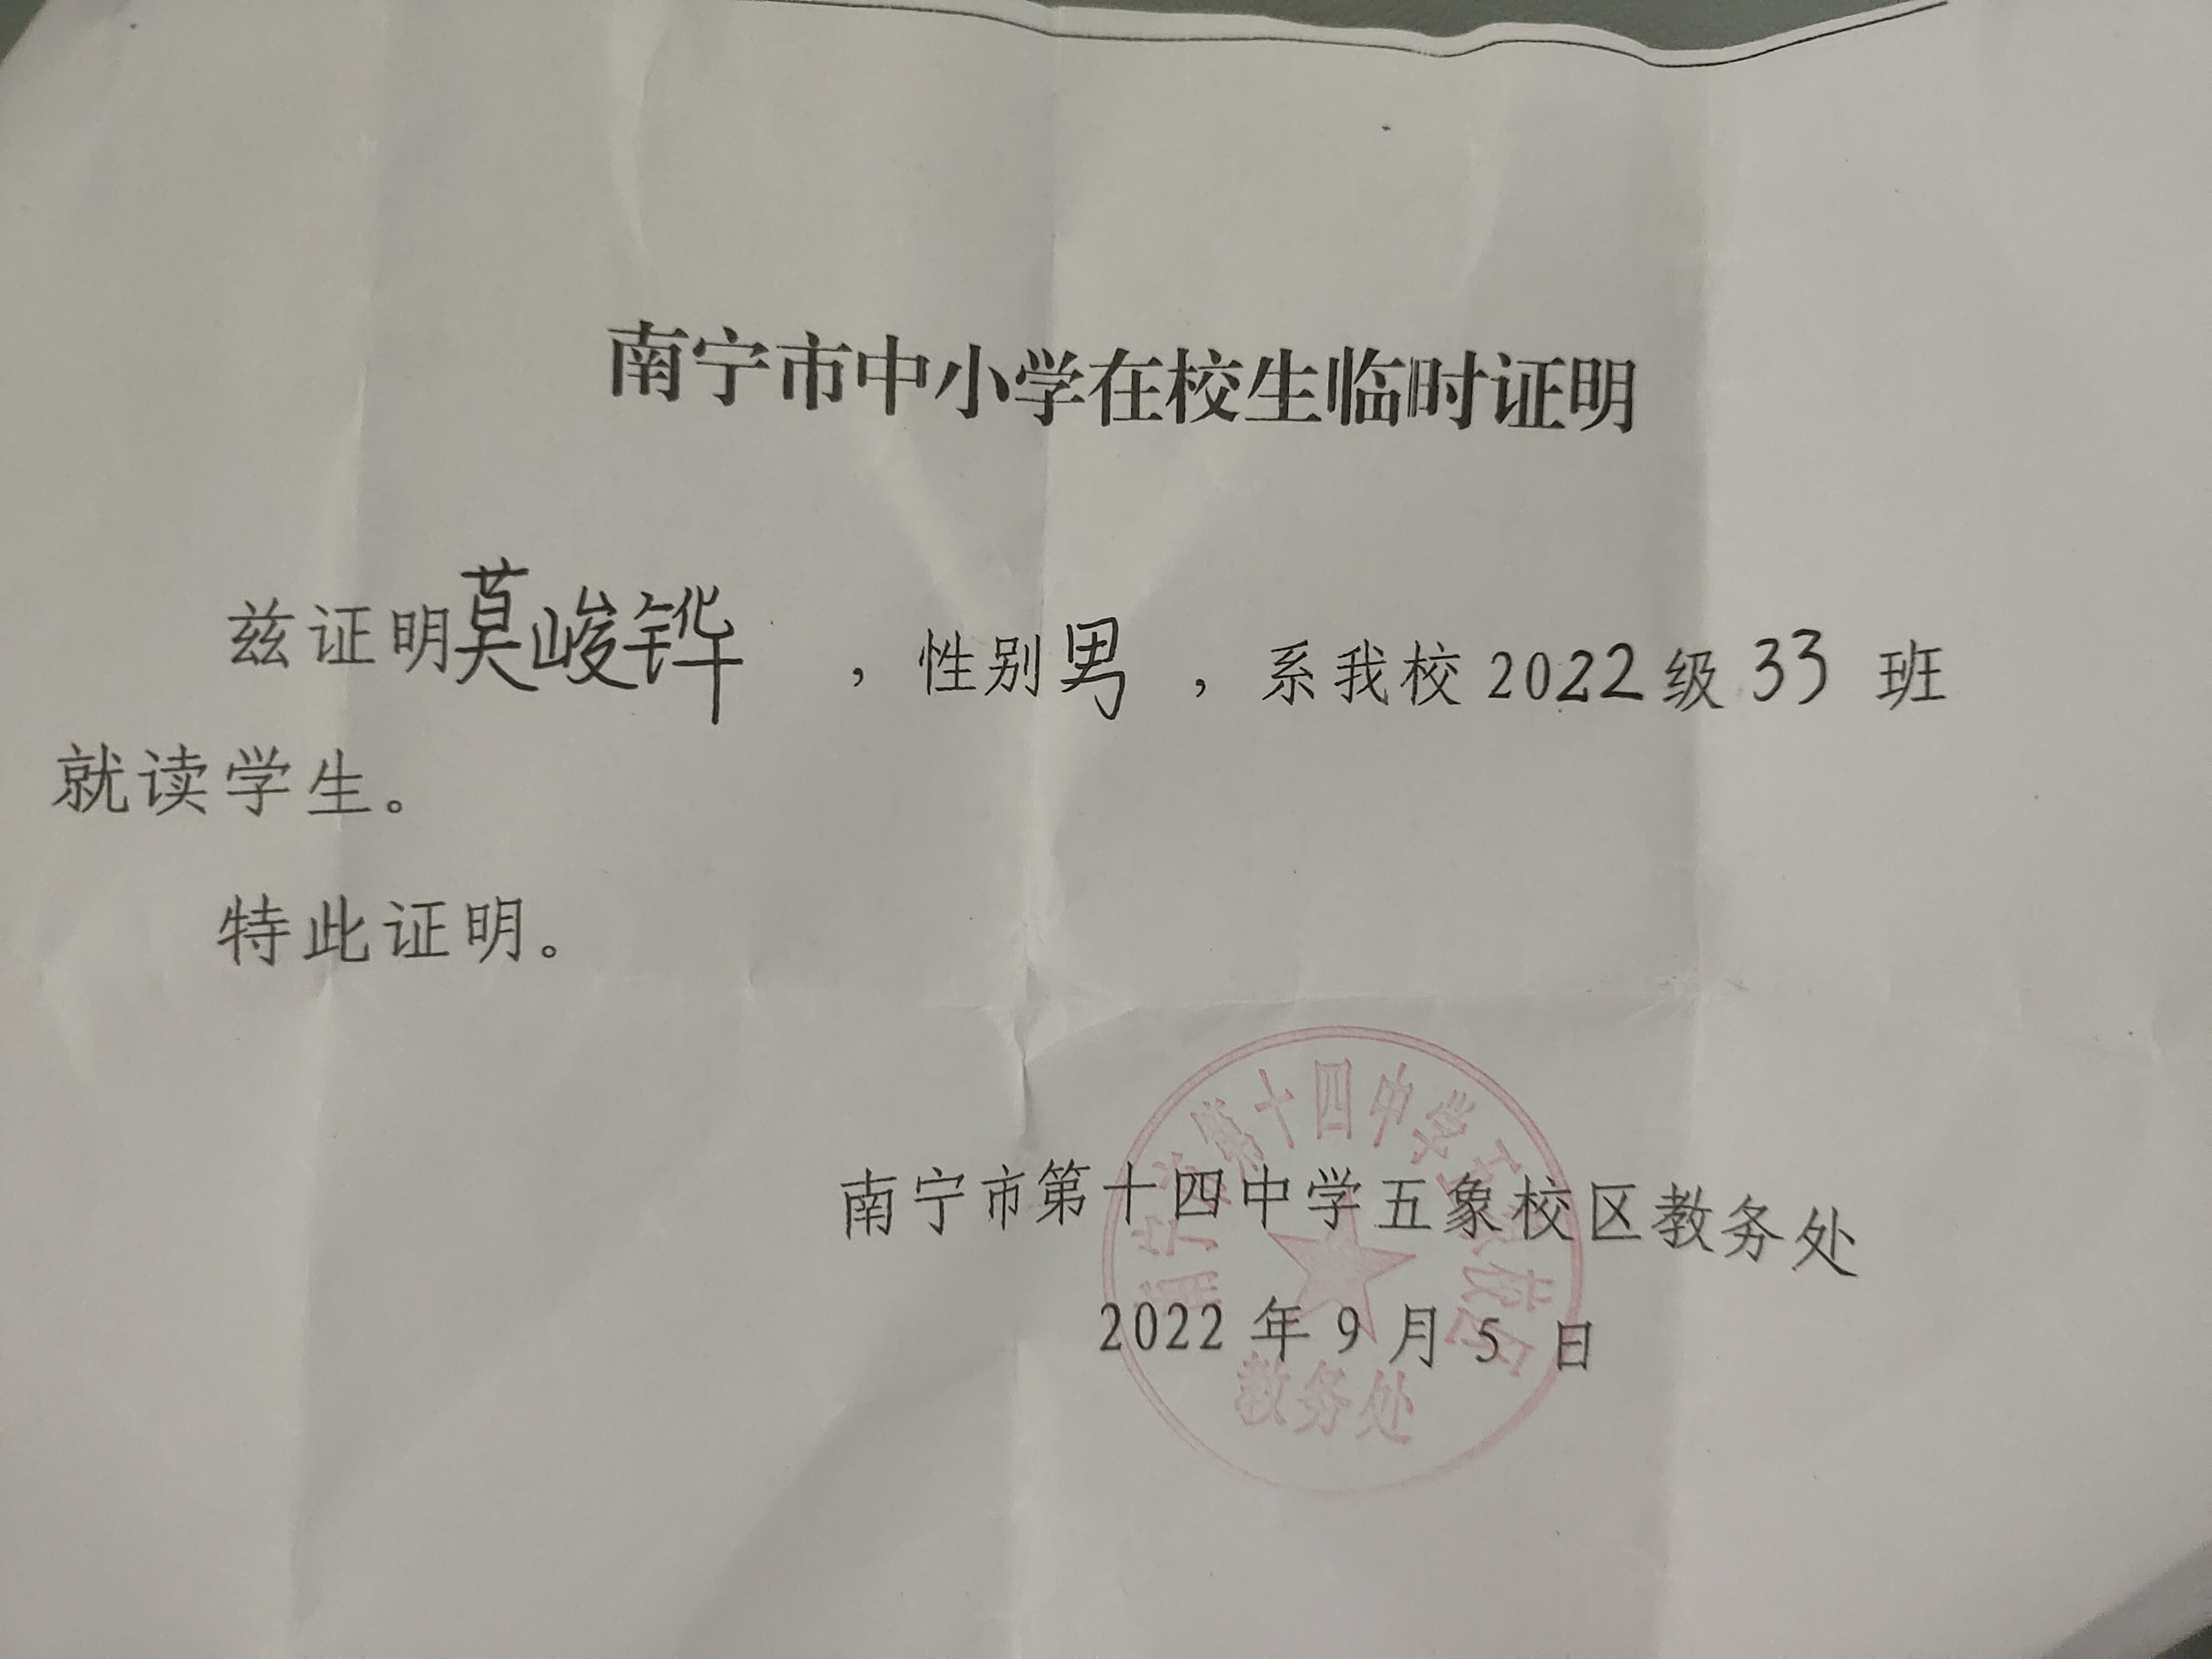 南宁市中小学在校生临时证明
兹证明莫峻铧，性别男，系我校2022级33班
就读学生。
特此证明。
南宁市第十四中学五象校区教务处
2022年9月5日
第十四中学
教务处